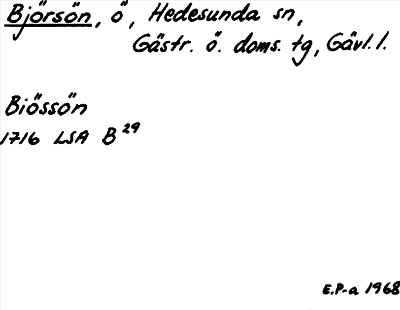 Björsön, ö, Hedesunda sn,
Gästr. ö. doms. tg, Gävl. l.
Biössön
1716 LSA B 29
E.P-a 1968